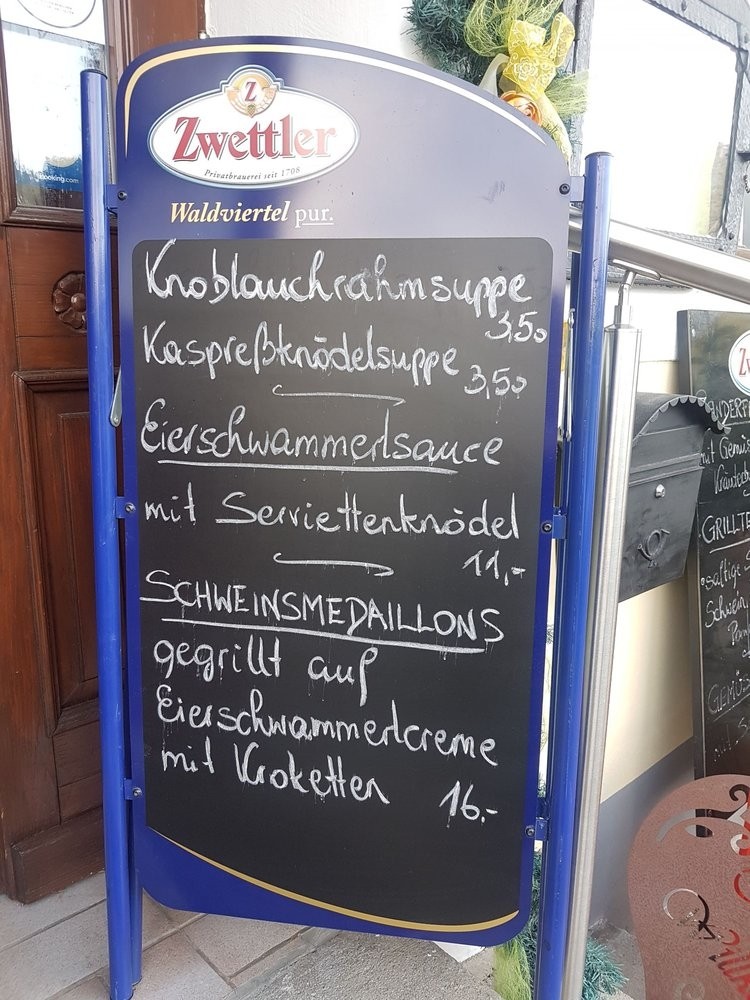 Z
Zwettler
Privatbrauerei seit 1708
Waldviertel pur.
Knoblauchrahmsuppe
3,50
Kaspreßknödelsuppe 3,50
Eierschwammerlsauce
mit Serviettenknödel
11,-
SCHWEINSMEDAILLONS
gegrillt auf
Eierschwammerlcreme
mit Kroketten 16.-
booking.com